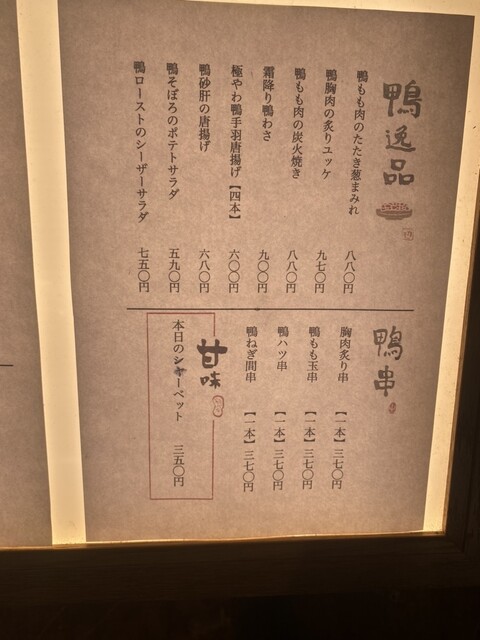 鴨逸品
鴨もも肉のたたき葱まみれ 八八〇円
鴨胸肉の炙りユッケ 九七〇円
鴨もも肉の炭火焼き 八八〇円
霜降り鴨わさ 九〇〇円
極やわ鴨手羽唐揚げ【四本】 六〇〇円
鴨砂肝の唐揚げ 六八〇円
鴨そぼろのポテトサラダ 五九〇円
鴨ローストのシーザーサラダ 七五〇円
鴨串
胸肉炙り串 【一本】三七〇円
鴨もも玉串 【一本】三七〇円
鴨ハツ串 【一本】三七〇円
鴨ねぎ間串 【一本】三七〇円
甘味
本日のシャーベット 三五〇円